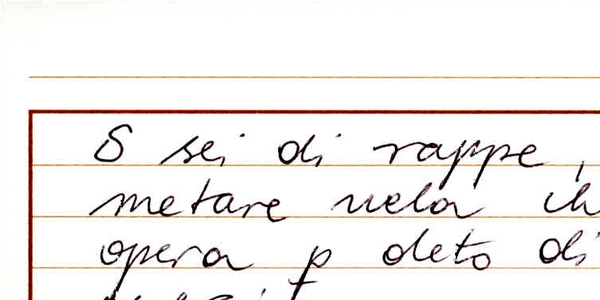 S sei di rappe,
metare uela ih
opera p deto di